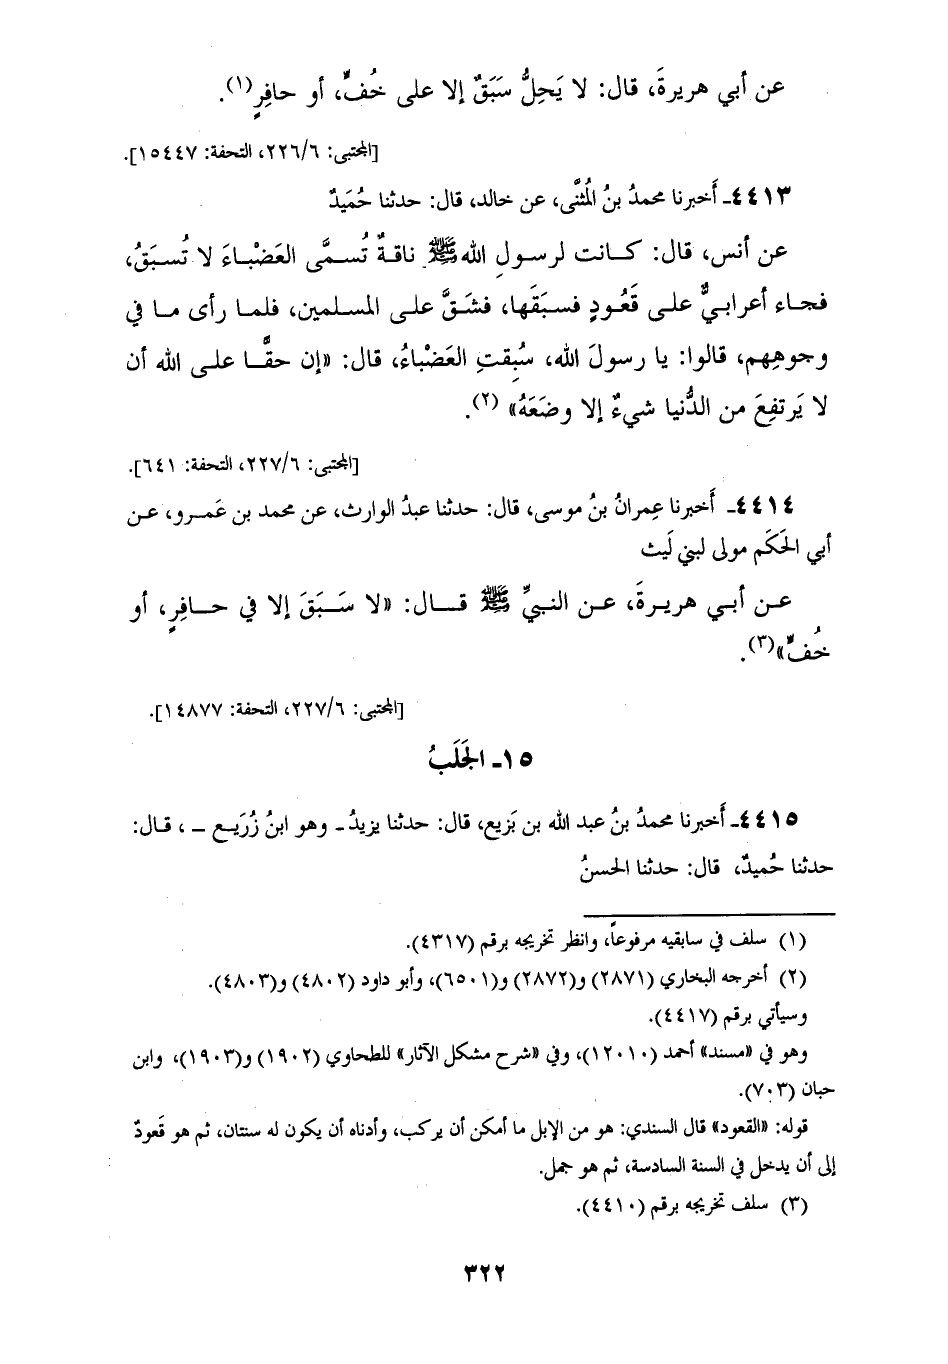 عن أبي هريرةَ، قال: لا يَحِلُّ سَبَقٌ إلا على خُفٍّ، أو حافِرٍ(١).
[المجتبى: ٢٢٦/٦، التحفة: ١٥٤٤٧].
٤٤١٣ـ أَخبرنا محمدُ بنُ المُثنَّى، عن خالد، قال: حدثنا حُمَيدٌ
عن أنس، قال: كانت لرسولِ الله ﷺ ناقةٌ تُسمَّى العَضْباءَ لا تُسبَقُ،
فجاء أعرابيٌّ على قَعُودٍ فسبَقَها، فشَقَّ على المسلمين، فلما رأى ما في
وجوهِهم، قالوا: يا رسولَ الله، سُبِقتِ العَضْباءُ، قال: «إن حقًّا على الله أن
لا يَرتفِعَ من الدُّنيا شيءٌ إلا وضَعَهُ» (٢).
[المجتبى: ٢٢٧/٦، التحفة: ٦٤١].
٤٤١٤ـ أَخبرنا عِمرانُ بنُ موسى، قال: حدثنا عبدُ الوارث، عن محمد بن عَمرو، عن
أبي الحَكَم مولى لبني لَيث
عن أبي هريرةَ، عن النبيِّ ﷺ قال: «لا سَبَقَ إلا في حافِرٍ، أو
خُفٍّ»(٣).
[المجتبى: ٢٢٧/٦، التحفة: ١٤٨٧٧].
١٥ـ الجَلَبُ
٤٤١٥ـ أَخبرنا محمدُ بنُ عبد الله بن بَزيع، قال: حدثنا يزيدُ ـ وهو ابنُ زُرَيع ـ ، قال:
حدثنا حُميدٌ، قال: حدثنا الحسنُ
(١) سلف في سابقيه مرفوعاً، وانظر تخريجه برقم (٤٣١٧).
(٢) أخرجه البخاري (٢٨٧١) و(٢٨٧٢) و(٦٥٠١)، وأبو داود (٤٨٠٢) و(٤٨٠٣).
وسيأتي برقم (٤٤١٧).
وهو في «مسند» أحمد (١٢٠١٠)، وفي «شرح مشكل الآثار» للطحاوي (١٩٠٢) و(١٩٠٣)، وابن
حبان (٧٠٣).
قوله: «القعود» قال السندي: هو من الإبل ما أمكن أن يركب، وأدناه أن يكون له سنتان، ثم هو قَعودٌ
إلى أن يدخل في السنة السادسة، ثم هو جمل.
(٣) سلف تخريجه برقم (٤٤١٠).
٣٢٢